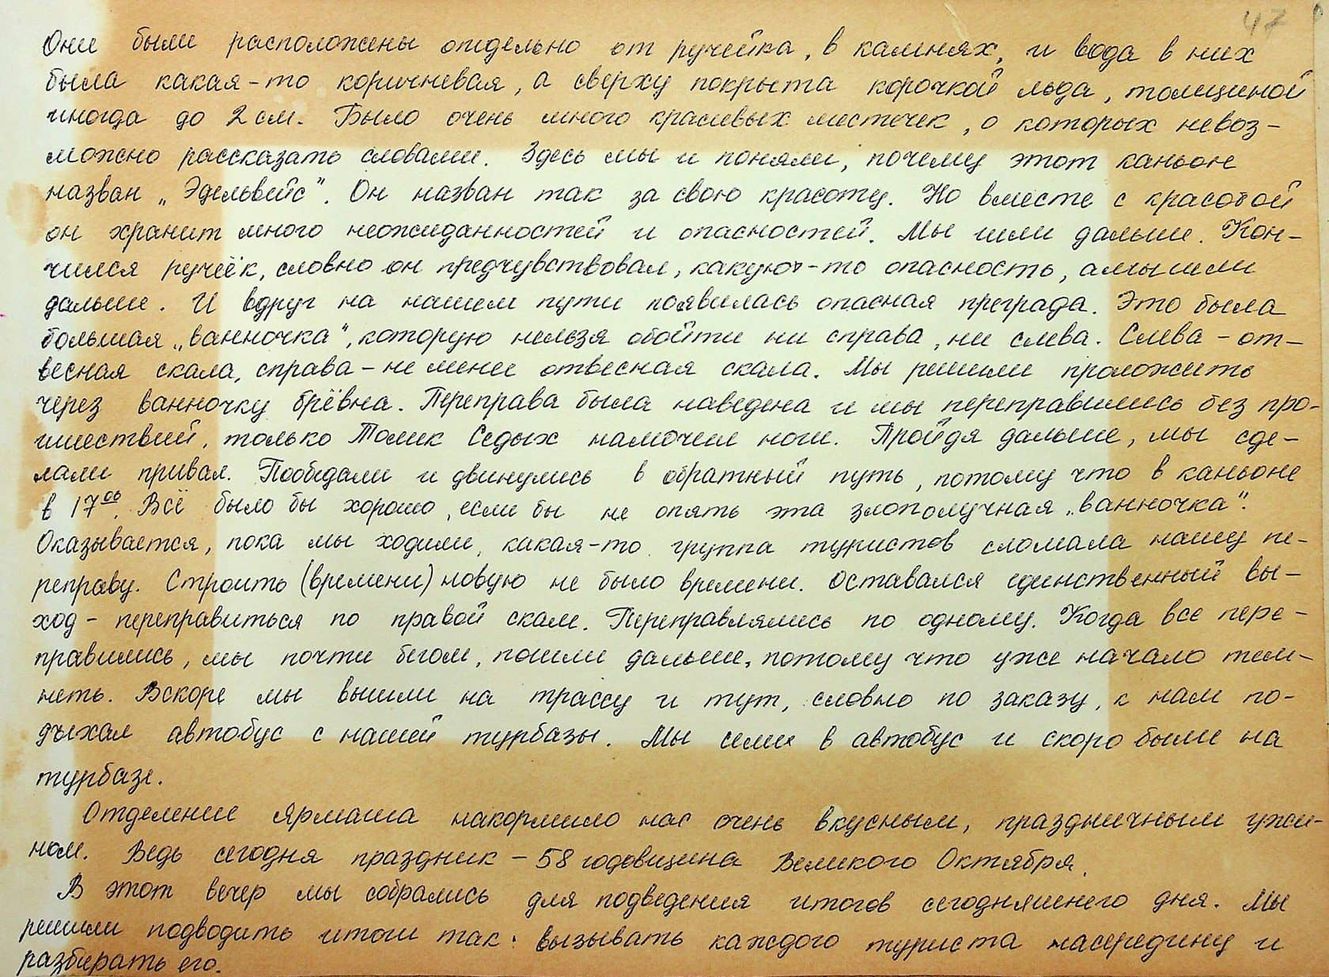 47
Они были расположены отдельно от ручейка, в камнях, и вода в них
была какая-то коричневая, а сверху покрыта корочкой льда, толщиной
иногда до 2 см. Было очень много красивых местечек, о которых невоз-
можно рассказать словами. Здесь мы и поняли, почему этот каньон
назван „Эдельвейс". Он назван так за свою красоту. Но вместе с красотой
он хранит много неожиданностей и опасностей. Мы шли дальше. Кон-
чился ручеёк, словно он предчувствовал, какую-то опасность, а мы шли
дальше. И вдруг на нашем пути появилась опасная преграда. Это была
большая „ванночка", которую нельзя обойти ни справа, ни слева. Слева - от-
весная скала, справа - не менее отвесная скала. Мы решили проложить
через ванночку брёвна. Переправа была наведена и мы переправились без про-
ишествий, только Толик Седых намочил ноги. Пройдя дальше, мы сде-
лали привал. Пообедали и двинулись в обратный путь, потому что в каньоне
в 17 00. Всё было бы хорошо, если бы не опять эта злополучная „ванночка".
Оказывается, пока мы ходили, какая-то группа туристов сломала нашу пе-
реправу. Строить (времени) новую не было времени. Оставался единственный вы-
ход - переправиться по правой скале. Переправлялись по одному. Когда все пере-
правились, мы почти бегом, пошли дальше, потому что уже начало тем-
неть. Вскоре мы вышли на трассу и тут, словно по заказу, к нам по-
дъехал автобус с нашей турбазы. Мы сели в автобус и скоро были на
турбазе.
Отделение Ярмаша накормило нас очень вкусным, праздничным ужи-
ном. Ведь сегодня праздник - 58 годовщина Великого Октября.
В этот вечер мы собрались для подведения итогов сегодняшнего дня. Мы
решили подводить итоги так: вызывать каждого туриста насередину и
разбирать его.